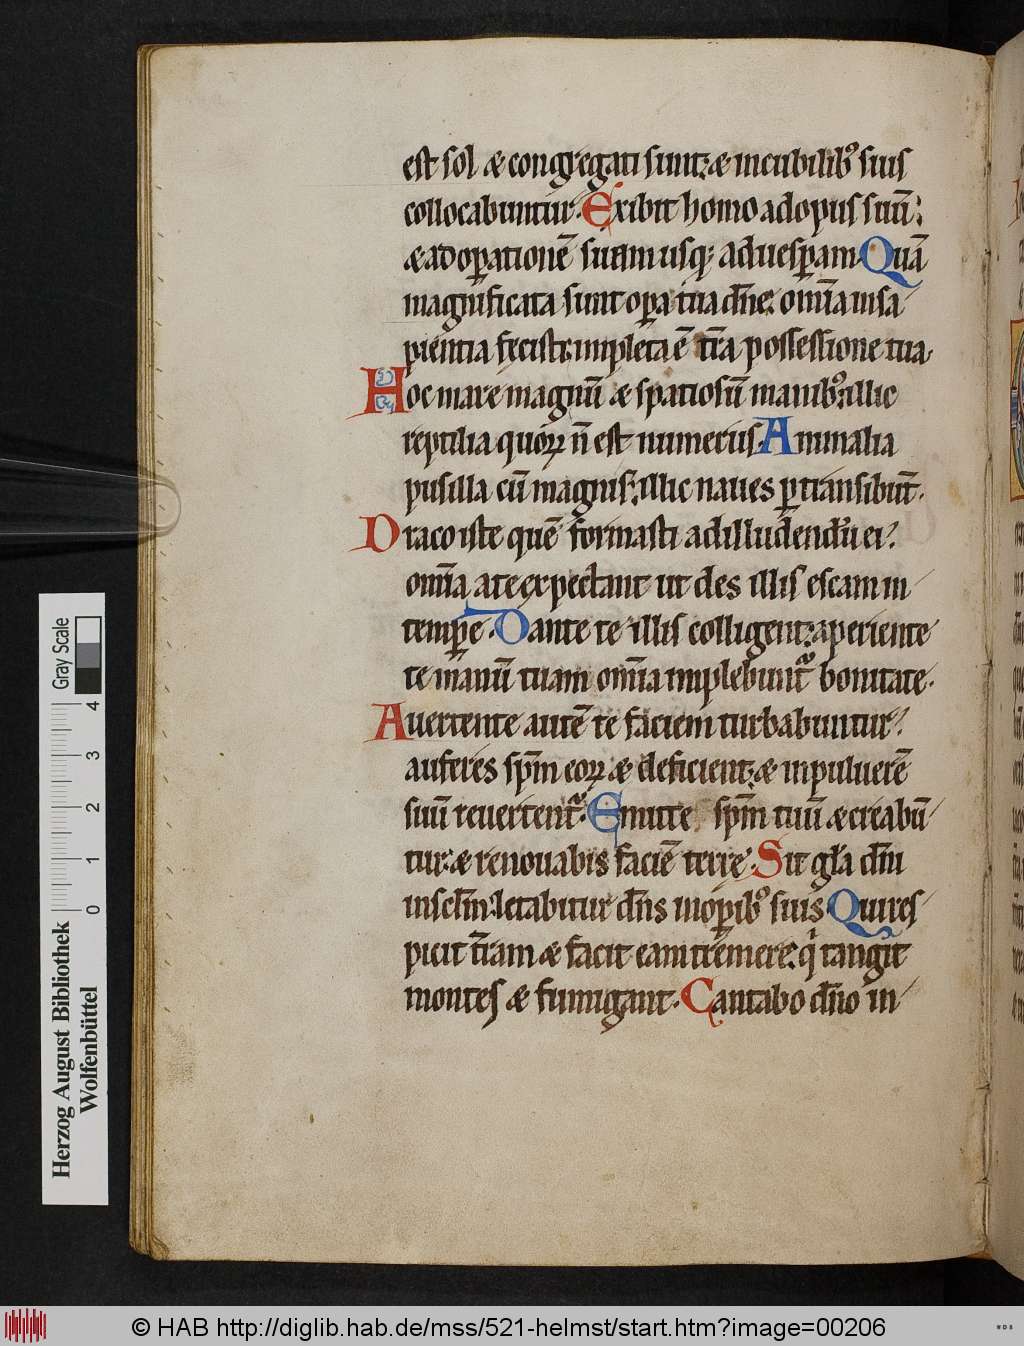 est sol & congregati sunt: & in cubilibꝰ suis
collocabuntur. Exibit homo ad opus suū:
& ad op̄ationē suam usq; ad uesp̄am. Quā
magnificata sunt op̄a tua dn̄e: om̄ia in sa
pientia fecisti: impleta ē tr̄a possessione tua.
Hoc mare magnū & spatiosū manibꝰ: illic
reptilia quoꝝ n̄ est numerus. Animalia
pusilla cū magnis: illic naues ꝑtransibūt.
Draco iste quē formasti ad illudendū ei:
om̄ia a te expectant ut des illis escam in
temp̄e. Dante te illis colligent: aperiente
te manū tuam om̄ia implebunt᷑ bonitate.
Auertente autē te faciem turbabuntur:
auferes sp̄m eoꝝ & deficient: & in puluerē
suū reuertent᷑. Emitte sp̄m tuū & creabū
tur: & renouabis faciē terre. Sit gl̄a dn̄i
in sclm̄: letabitur dn̄s in op̄ibꝰ suis. Qui res
picit t̄ram & facit eam tremere: qͥ tangit
montes & fumigant. Cantabo dn̄o in
Gray Scale
4
3
2
1
0
Herzog August Bibliothek
Wolfenbüttel
© HAB http://diglib.hab.de/mss/521-helmst/start.htm?image=00206